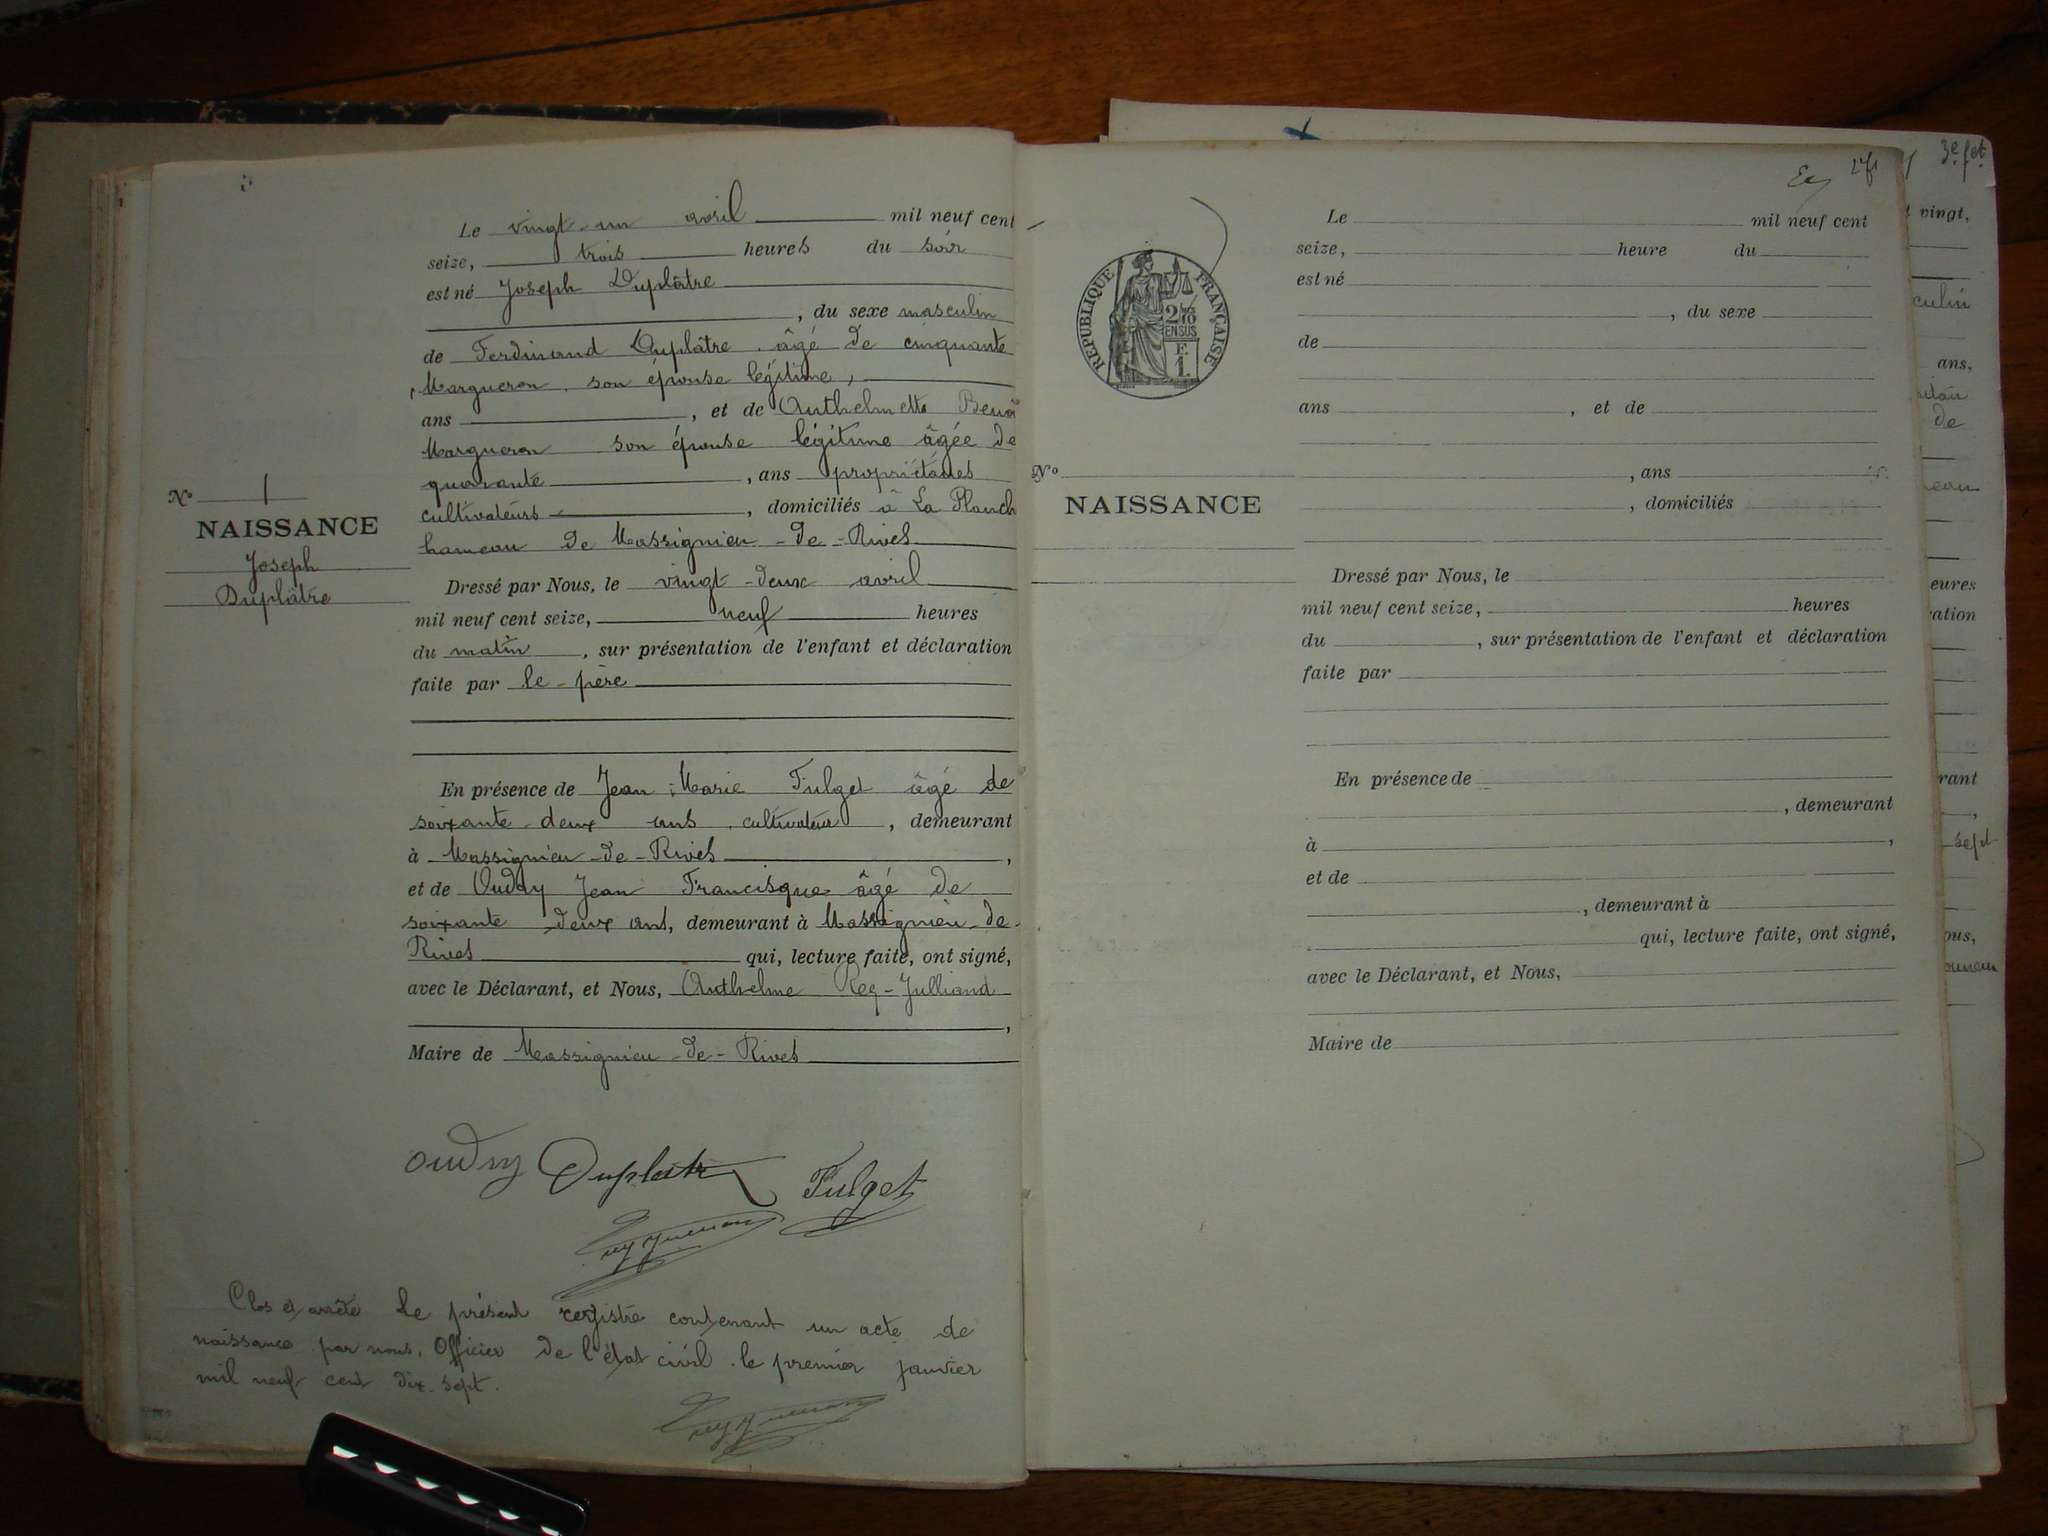 Le vingt-un avril mil neuf cent
seize, trois heures du soir
est né Joseph Duplâtre
, du sexe masculin
de Ferdinand Duplâtre âgé de cinquante
Margueron son épouse légitime,
ans , et de Anthelmette
Margueron son épouse légitime âgée de
quarante , ans propriétaires
cultivateurs , domiciliés à La Planch
hameau de Massignieu-de-Rives
N° 1
NAISSANCE
Joseph
Duplâtre
Dressé par Nous, le vingt-deux avril
mil neuf cent seize, neuf heures
du matin , sur présentation de l'enfant et déclaration
faite par le père
En présence de Jean Marie Fulget âgé de
soixante-deux ans cultivateur , demeurant
à Massignieu-de-Rives ,
et de Oudry Jean Francisque âgé de
soixante deux ans, demeurant à Massignieu-de-
Rives qui, lecture faite, ont signé,
avec le Déclarant, et Nous, Anthelme Rey-Julliand
,
Maire de Massignieu-de-Rives
Oudry Duplatre Fulget
Clos et arrêté le présent registre contenant un acte de
naissance par nous, Officier de l'état civil le premier janvier
mil neuf cent dix-sept.
RÉPUBLIQUE FRANÇAISE
EN SUS
E.
1.
Le mil neuf cent
seize, heure du
est né
, du sexe
de
ans , et de
N° , ans
NAISSANCE
, domiciliés
Dressé par Nous, le
mil neuf cent seize, heures
du , sur présentation de l'enfant et déclaration
faite par
En présence de
, demeurant
à ,
et de
, demeurant à
qui, lecture faite, ont signé,
avec le Déclarant, et Nous,
Maire de
3e fet.
vingt,
culin
ans,
de
eures
ration
rant
sept
ous,